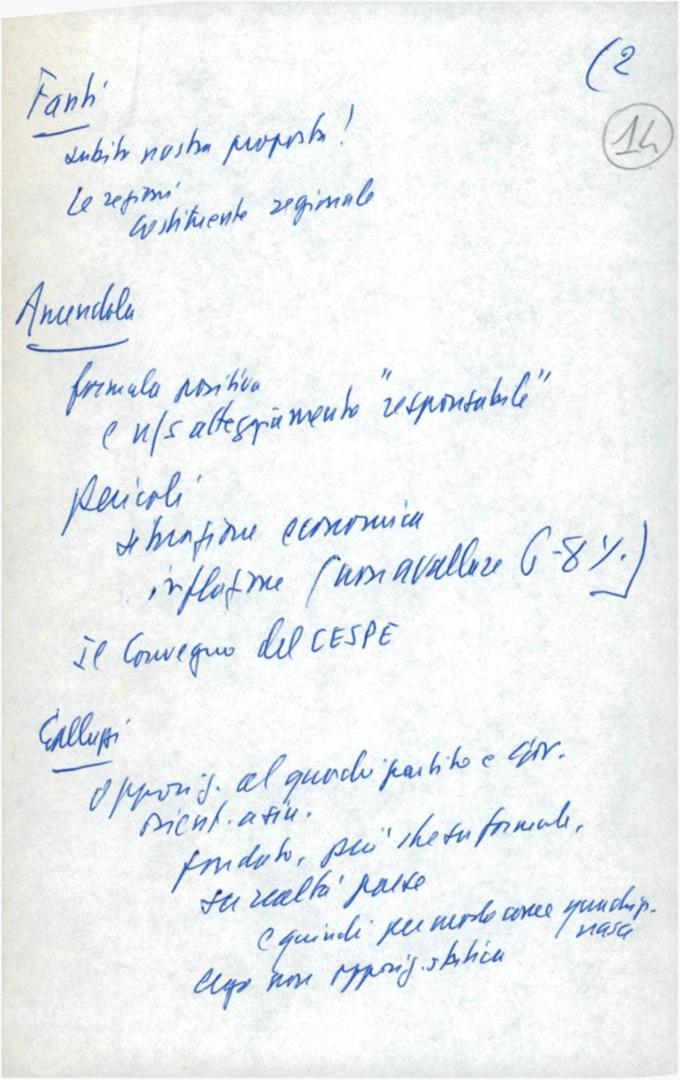 (2
14
Fanti
subito nostra proposta!
Le regioni
Costituente regionale
Amendola
formula positiva
e n/s atteggiamento "responsabile"
pericoli
situazione economica
inflazione (non avallare 6-8%.)
Il Convegno del CESPE
Galluzzi
opposiz. al quadripartito e gov.
orient. a sin.
fondato, più che su formule,
su realtà paese
e quindi per modo come quadrip.
nasce
ergo non opposiz. statica